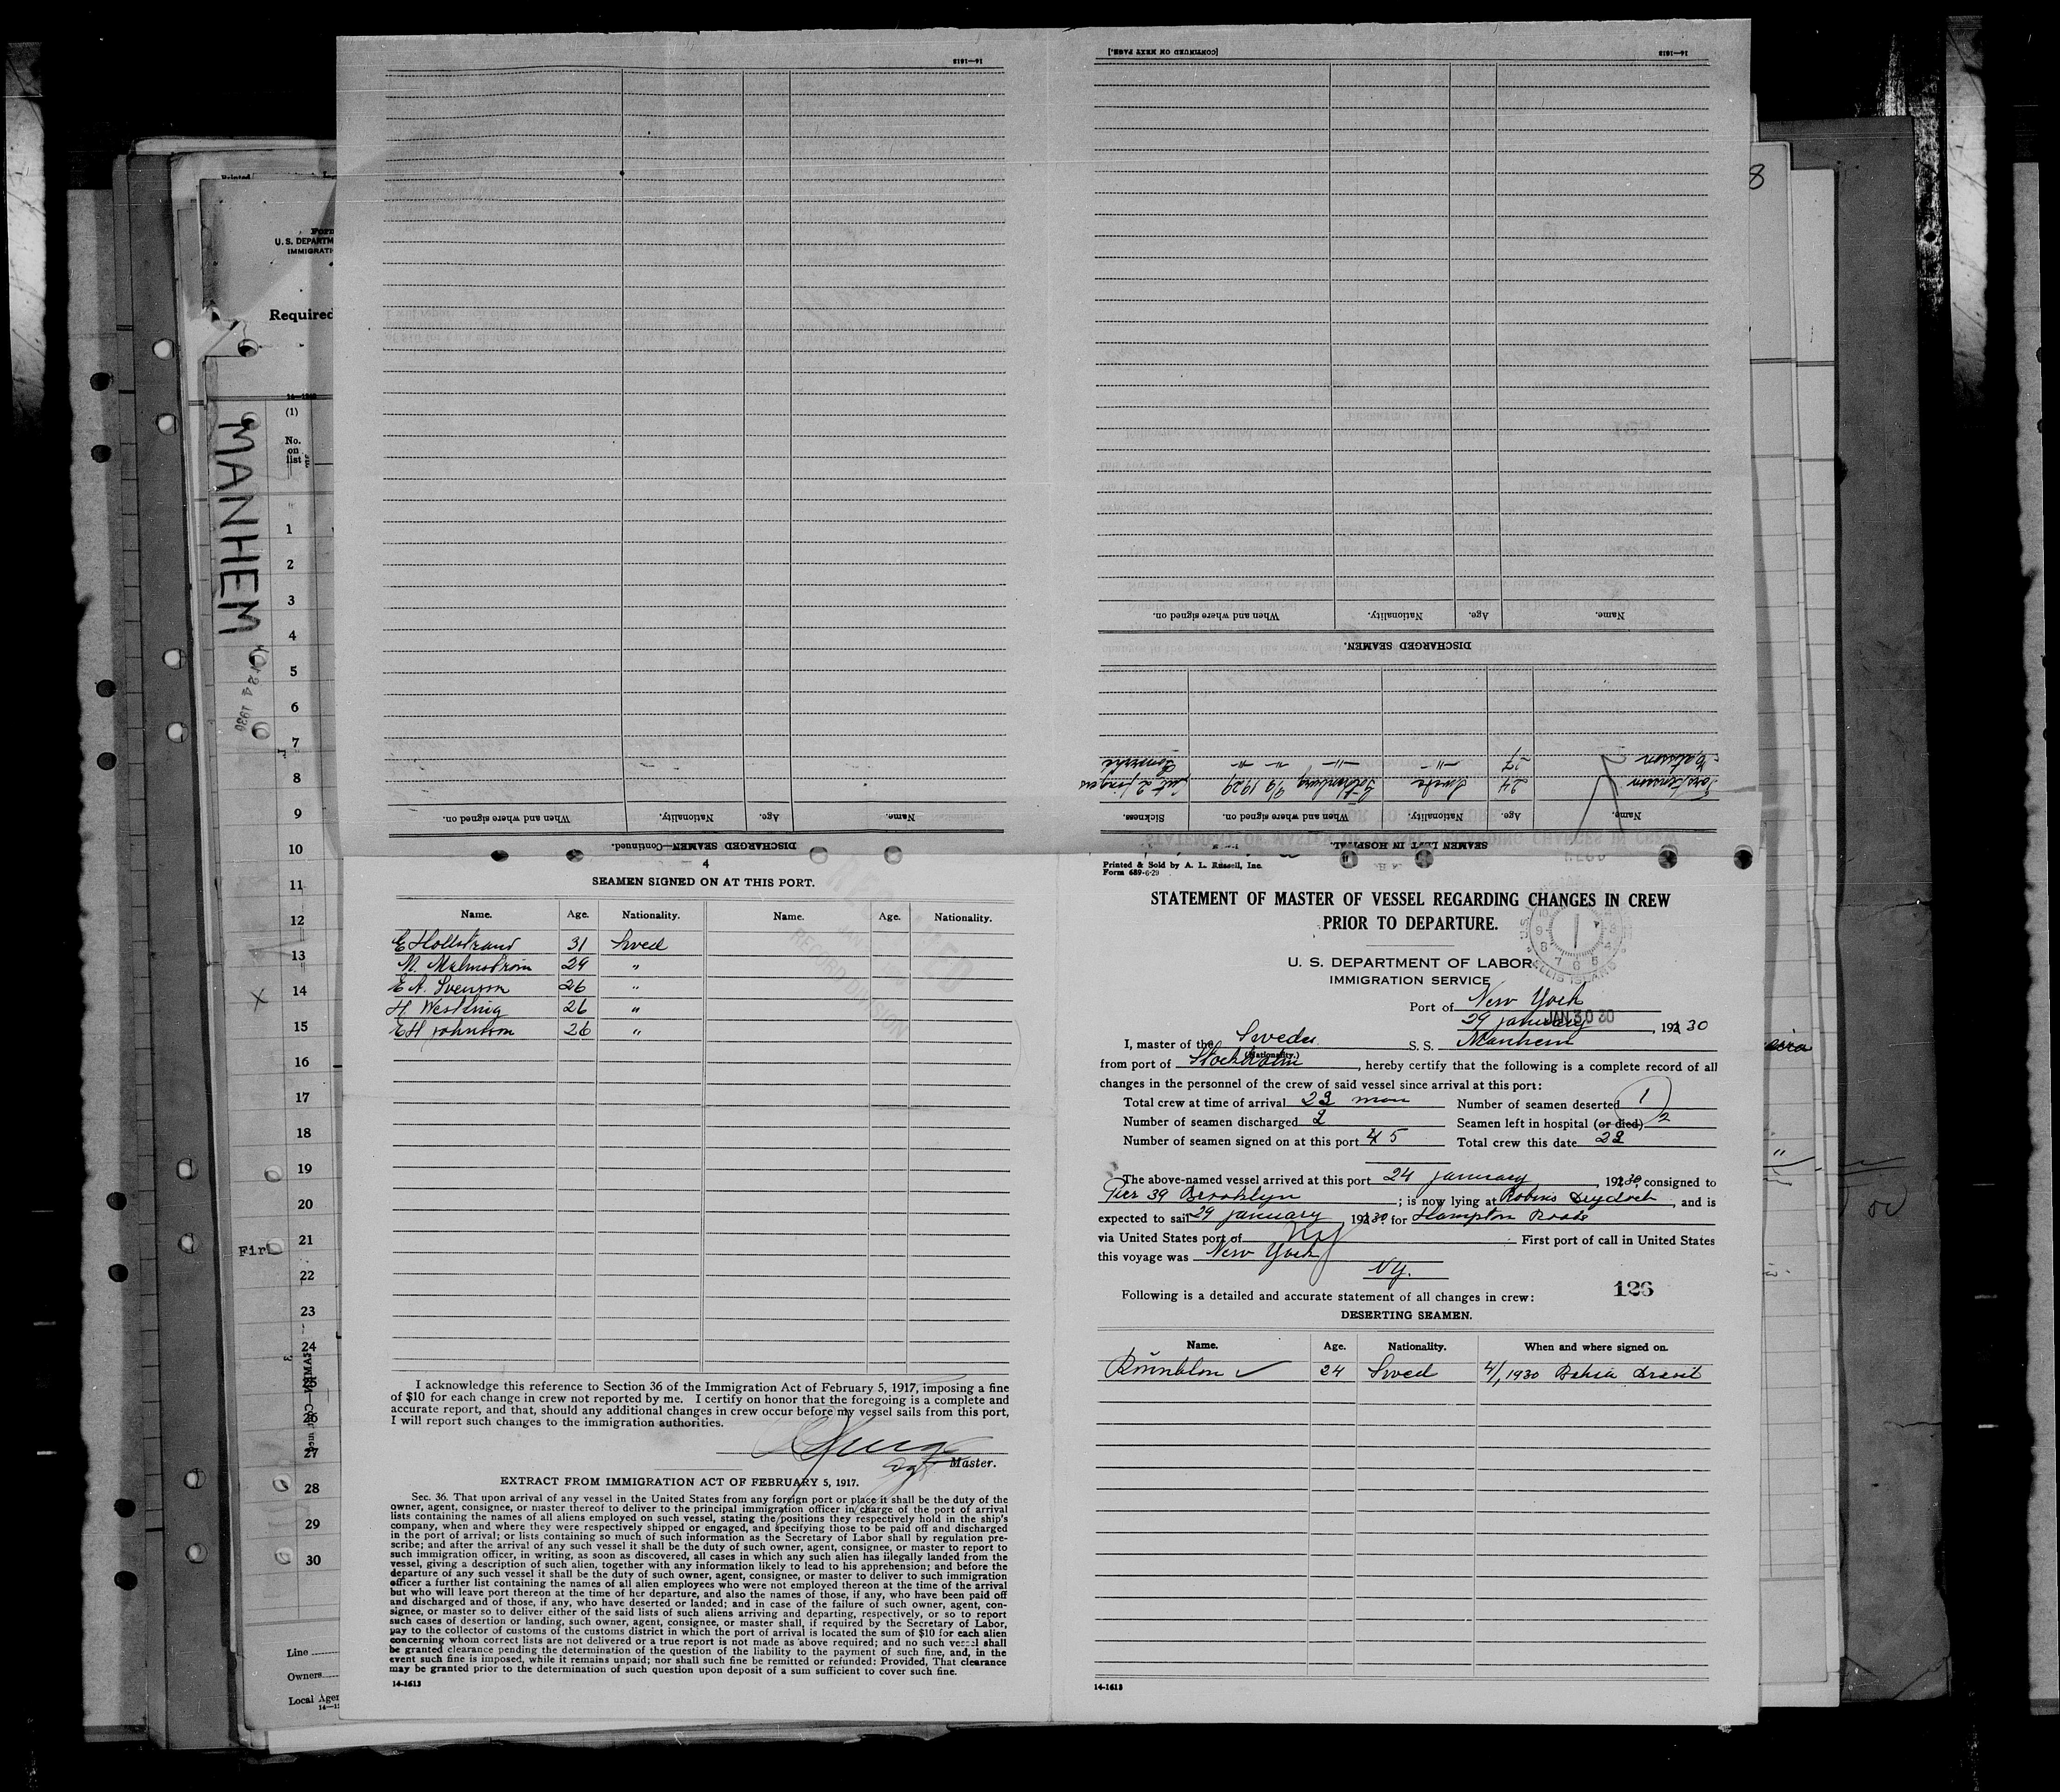 [CONTINUED ON NEXT PAGE.]
14—1613
14—1613
When and where signed on.
Nationality.
Age.
Name.
DISCHARGED SEAMEN.
Name. Age. Nationality. When and where signed on. Sickness.
24 Swede 9/9 1929 Cut 2 fingers
27 —"— —"— " "
SEAMEN LEFT IN HOSPITAL.
DISCHARGED SEAMEN—Continued.
Name. Age. Nationality. When and where signed on.
U. S. DEPARTM
IMMIGRATI
Required
(1)
No.
on
list
MANHEM
1
2
3
4
5
6
7
8
9
10
11
12
13
14
15
16
17
18
19
20
21
22
23
24
25
26
27
28
29
30
Line
Owners
Local Agen
8
4
SEAMEN SIGNED ON AT THIS PORT.
Name. Age. Nationality. Name. Age. Nationality.
E Hollstrand 31 Swed
M. Malmstrom 29 "
E A. Svenson 26 "
H. Westling 26 "
E H Johnson 26 "
I acknowledge this reference to Section 36 of the Immigration Act of February 5, 1917, imposing a fine
of $10 for each change in crew not reported by me. I certify on honor that the foregoing is a complete and
accurate report, and that, should any additional changes in crew occur before my vessel sails from this port,
I will report such changes to the immigration authorities.
Master.
EXTRACT FROM IMMIGRATION ACT OF FEBRUARY 5, 1917.
Sec. 36. That upon arrival of any vessel in the United States from any foreign port or place it shall be the duty of the
owner, agent, consignee, or master thereof to deliver to the principal immigration officer in charge of the port of arrival
lists containing the names of all aliens employed on such vessel, stating the positions they respectively hold in the ship's
company, when and where they were respectively shipped or engaged, and specifying those to be paid off and discharged
in the port of arrival; or lists containing so much of such information as the Secretary of Labor shall by regulation pre-
scribe; and after the arrival of any such vessel it shall be the duty of such owner, agent, consignee, or master to report to
such immigration officer, in writing, as soon as discovered, all cases in which any such alien has illegally landed from the
vessel, giving a description of such alien, together with any information likely to lead to his apprehension; and before the
departure of any such vessel it shall be the duty of such owner, agent, consignee, or master to deliver to such immigration
officer a further list containing the names of all alien employees who were not employed thereon at the time of the arrival
but who will leave port thereon at the time of her departure, and also the names of those, if any, who have been paid off
and discharged and of those, if any, who have deserted or landed; and in case of the failure of such owner, agent, con-
signee, or master so to deliver either of the said lists of such aliens arriving and departing, respectively, or so to report
such cases of desertion or landing, such owner, agent, consignee, or master shall, if required by the Secretary of Labor,
pay to the collector of customs of the customs district in which the port of arrival is located the sum of $10 for each alien
concerning whom correct lists are not delivered or a true report is not made as above required; and no such vessel shall
be granted clearance pending the determination of the question of the liability to the payment of such fine, and, in the
event such fine is imposed, while it remains unpaid; nor shall such fine be remitted or refunded: Provided, That clearance
may be granted prior to the determination of such question upon deposit of a sum sufficient to cover such fine.
14-1613
Printed & Sold by A. L. Russell, Inc.
Form 689-6-29
STATEMENT OF MASTER OF VESSEL REGARDING CHANGES IN CREW
PRIOR TO DEPARTURE.
U. S. DEPARTMENT OF LABOR
IMMIGRATION SERVICE
ELLIS ISLAND
Port of New York
29 january, 1930
JAN 30 30
I, master of the Swedes S. S. Manhem
(Nationality.)
from port of Stockholm, hereby certify that the following is a complete record of all
changes in the personnel of the crew of said vessel since arrival at this port:
Total crew at time of arrival 22 men Number of seamen deserted 1
Number of seamen discharged 2 Seamen left in hospital (or died) 2
Number of seamen signed on at this port 5 Total crew this date 22
The above-named vessel arrived at this port 24 january, 1930, consigned to
Pier 39 Brooklyn; is now lying at Robins Drydock, and is
expected to sail 29 january 1930, for Hampton Roads
via United States port of First port of call in United States
this voyage was New York
NY.
126
Following is a detailed and accurate statement of all changes in crew:
DESERTING SEAMEN.
Name. Age. Nationality. When and where signed on.
24 Swed 4/1 1930 Bahia Brasil
14-1613